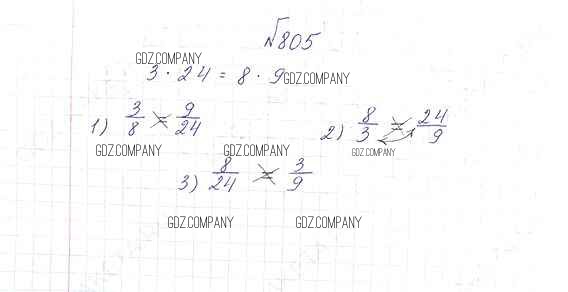 №805
GDZ.COMPANY
3 · 24 = 8 · 9 GDZ.COMPANY
1) 3/8 = 9/24
2) 8/3 = 24/9
GDZ.COMPANY GDZ.COMPANY GDZ.COMPANY
3) 8/24 = 3/9
GDZ.COMPANY GDZ.COMPANY